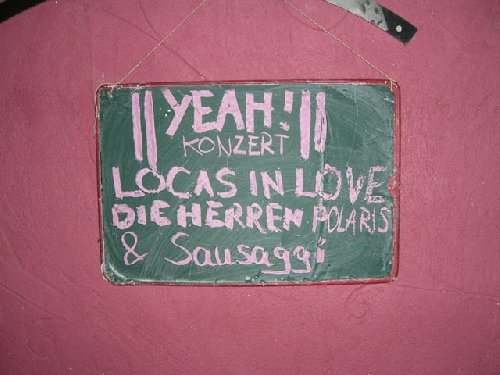 !! YEAH! !!
KONZERT
LOCAS IN LOVE
DIE HERREN POLARIS
& Sausaggi